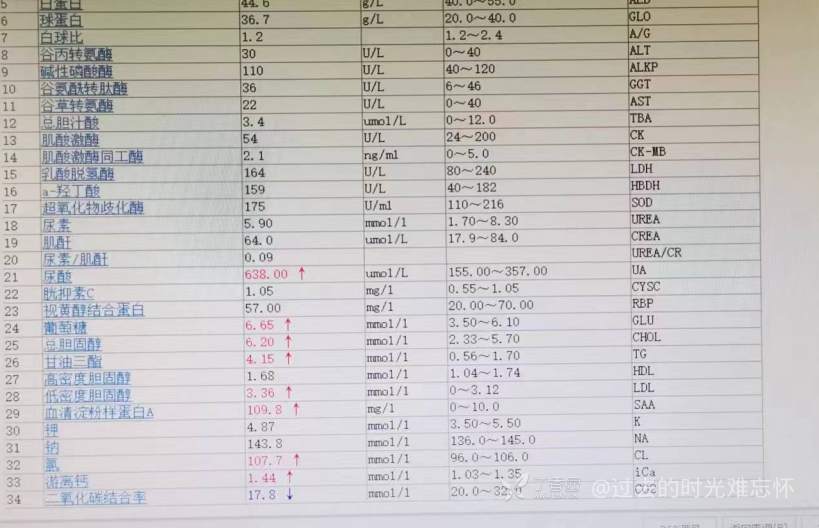 5 白蛋白 44.6 g/L 40.0～55.0 ALB
6 球蛋白 36.7 g/L 20.0～40.0 GLO
7 白球比 1.2 1.2～2.4 A/G
8 谷丙转氨酶 30 U/L 0～40 ALT
9 碱性磷酸酶 110 U/L 40～120 ALKP
10 谷氨酰转肽酶 36 U/L 6～46 GGT
11 谷草转氨酶 22 U/L 0～40 AST
12 总胆汁酸 3.4 umol/L 0～12.0 TBA
13 肌酸激酶 54 U/L 24～200 CK
14 肌酸激酶同工酶 2.1 ng/ml 0～5.0 CK-MB
15 乳酸脱氢酶 164 U/L 80～240 LDH
16 a-羟丁酸 159 U/L 40～182 HBDH
17 超氧化物歧化酶 175 U/ml 110～216 SOD
18 尿素 5.90 mmol/l 1.70～8.30 UREA
19 肌酐 64.0 umol/L 17.9～84.0 CREA
20 尿素/肌酐 0.09 UREA/CR
21 尿酸 638.00 ↑ umol/L 155.00～357.00 UA
22 胱抑素C 1.05 mg/l 0.55～1.05 CYSC
23 视黄醇结合蛋白 57.00 mg/l 20.00～70.00 RBP
24 葡萄糖 6.65 ↑ mmol/l 3.50～6.10 GLU
25 总胆固醇 6.20 ↑ mmol/l 2.33～5.70 CHOL
26 甘油三酯 4.15 ↑ mmol/l 0.56～1.70 TG
27 高密度胆固醇 1.68 mmol/l 1.04～1.74 HDL
28 低密度胆固醇 3.36 ↑ mmol/l 0～3.12 LDL
29 血清淀粉样蛋白A 109.8 ↑ mg/l 0～10.0 SAA
30 钾 4.87 mmol/l 3.50～5.50 K
31 钠 143.8 mmol/l 136.0～145.0 NA
32 氯 107.7 ↑ mmol/l 96.0～106.0 CL
33 游离钙 1.44 ↑ mmol/l 1.03～1.35 iCa
34 二氧化碳结合率 17.8 ↓ mmol/l 20.0～32.0 CO2
@过去的时光难忘怀